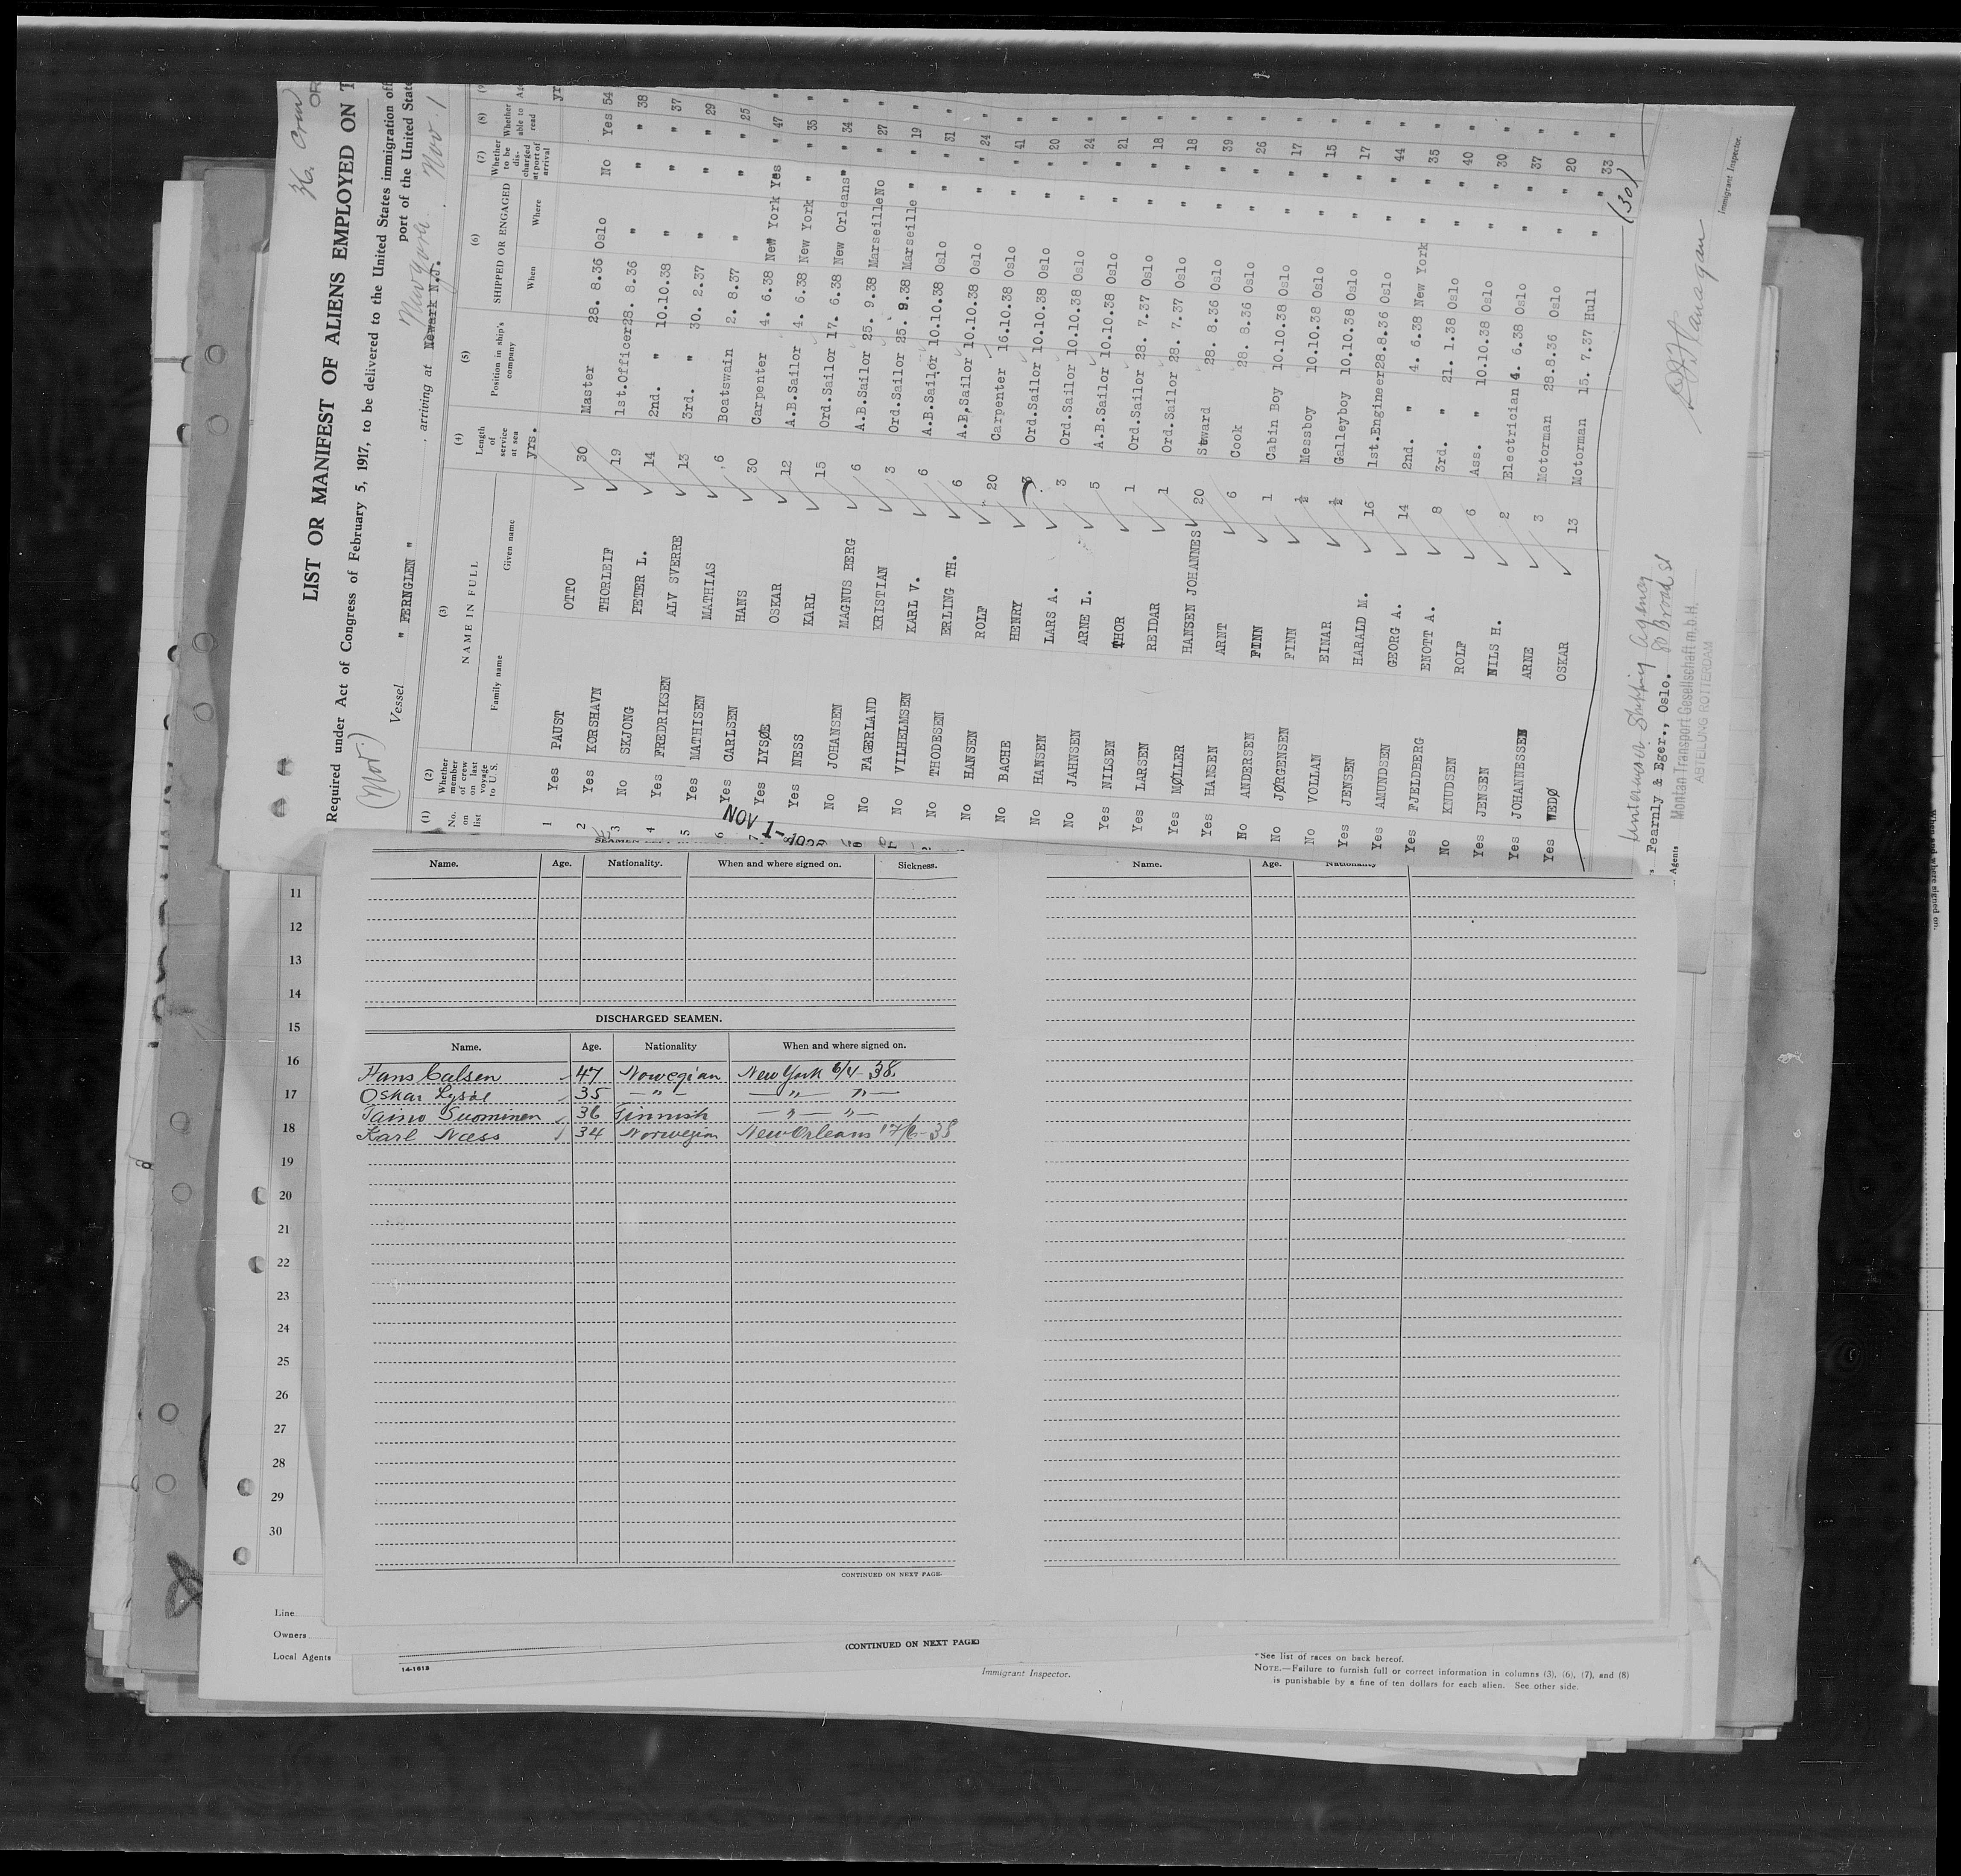 36. Crew
LIST OR MANIFEST OF ALIENS EMPLOYED ON T
Required under Act of Congress of February 5, 1917, to be delivered to the United States immigration off
port of the United State
(Nor.)
Vessel " FERNGLEN " arriving at Newark N.J. New York. Nov. 1
(1) No. on list (2) Whether member of crew on last voyage to U.S. (3) NAME IN FULL Family name Given name (4) Length of service at sea (5) Position in ship's company (6) SHIPPED OR ENGAGED When Where (7) Whether to be discharged at port of arrival (8) Whether able to read
yrs.
1 Yes PAUST OTTO 30 Master 28. 8.36 Oslo No Yes 54
2 Yes KORSHAVN THORLEIF 19 1st.Officer 28. 8.36 " " " 38
3 No SKJONG PETER L. 14 2nd. " 10.10.38 " " " 37
4 Yes FREDRIKSEN ALV SVERRE 13 3rd. " 30. 2.37 " " " 29
5 Yes MATHISEN MATHIAS 6 Boatswain 2. 8.37 " " " 25
6 Yes CARLSEN HANS 30 Carpenter 4. 6.38 New York Yes " 47
7 Yes LYSØE OSKAR 12 A.B.Sailor 4. 6.38 New York " " 35
Yes NESS KARL 15 Ord.Sailor 17. 6.38 New Orleans " " 34
No JOHANSEN MAGNUS BERG 6 A.B.Sailor 25. 9.38 Marseille No " 27
No FAGERLAND KRISTIAN 3 Ord.Sailor 25. 9.38 Marseille " " 19
No VILHELMSEN KARL V. 6 A.B.Sailor 10.10.38 Oslo " " 31
No THODESEN ERLING TH. 6 A.B.Sailor 10.10.38 Oslo " " 24
No HANSEN ROLF 20 Carpenter 16.10.38 Oslo " " 41
No BACHE HENRY 3 Ord.Sailor 10.10.38 Oslo " " 20
No HANSEN LARS A. 3 Ord.Sailor 10.10.38 Oslo " " 24
No JAHNSEN ARNE L. 5 A.B.Sailor 10.10.38 Oslo " " 21
Yes NILSEN THOR 1 Ord.Sailor 28. 7.37 Oslo " " 18
Yes LARSEN REIDAR 1 Ord.Sailor 28. 7.37 Oslo " " 18
Yes MØLLER HANSEN JOHANNES 20 Steward 28. 8.36 Oslo " " 39
Yes HANSEN ARNT 6 Cook 28. 8.36 Oslo " " 26
No ANDERSEN FINN 1 Cabin Boy 10.10.38 Oslo " " 17
No JØRGENSEN FINN ½ Messboy 10.10.38 Oslo " " 15
No VOLLAN EINAR ½ Galleyboy 10.10.38 Oslo " " 17
Yes JENSEN HARALD M. 16 1st.Engineer 28.8.36 Oslo " " 44
Yes AMUNDSEN GEORG A. 14 2nd. " 4. 6.38 New York " " 35
Yes FJELDBERG ENOTT A. 8 3rd. " 21. 1.38 Oslo " " 40
No KNUDSEN ROLF 6 Ass. " 10.10.38 Oslo " " 30
Yes JENSEN NILS H. 2 Electrician 4. 6.38 Oslo " " 37
Yes JOHANNESSEN ARNE 3 Motorman 28.8.36 Oslo " " 20
Yes WEDØ OSKAR 13 Motorman 15. 7.37 Hull " " 33
(30)
NOV 1-
Shipping Agency 80 Broad St
Fearnly & Eger., Oslo.
Agents
Montan Transport Gesellschaft m.b.H.
ABTEILUNG ROTTERDAM
Flanagan
Immigrant Inspector.
Name. Age. Nationality. When and where signed on. Sickness.
Name. Age. Nationality
DISCHARGED SEAMEN.
Name. Age. Nationality When and where signed on.
Hans Calsen 47 Nowegian New York 6/4-38.
Oskar Lysøe 35 — " — — " — " —
Taino Suominen 36 Finnish — " — " —
Karl Næss 34 Norwegian New Orleans 17/6-38
CONTINUED ON NEXT PAGE.
11
12
13
14
15
16
17
18
19
20
21
22
23
24
25
26
27
28
29
30
Line
Owners
Local Agents
14-1613
(CONTINUED ON NEXT PAGE)
Immigrant Inspector.
*See list of races on back hereof.
NOTE.—Failure to furnish full or correct information in columns (3), (6), (7), and (8)
is punishable by a fine of ten dollars for each alien. See other side.
When and where signed on.